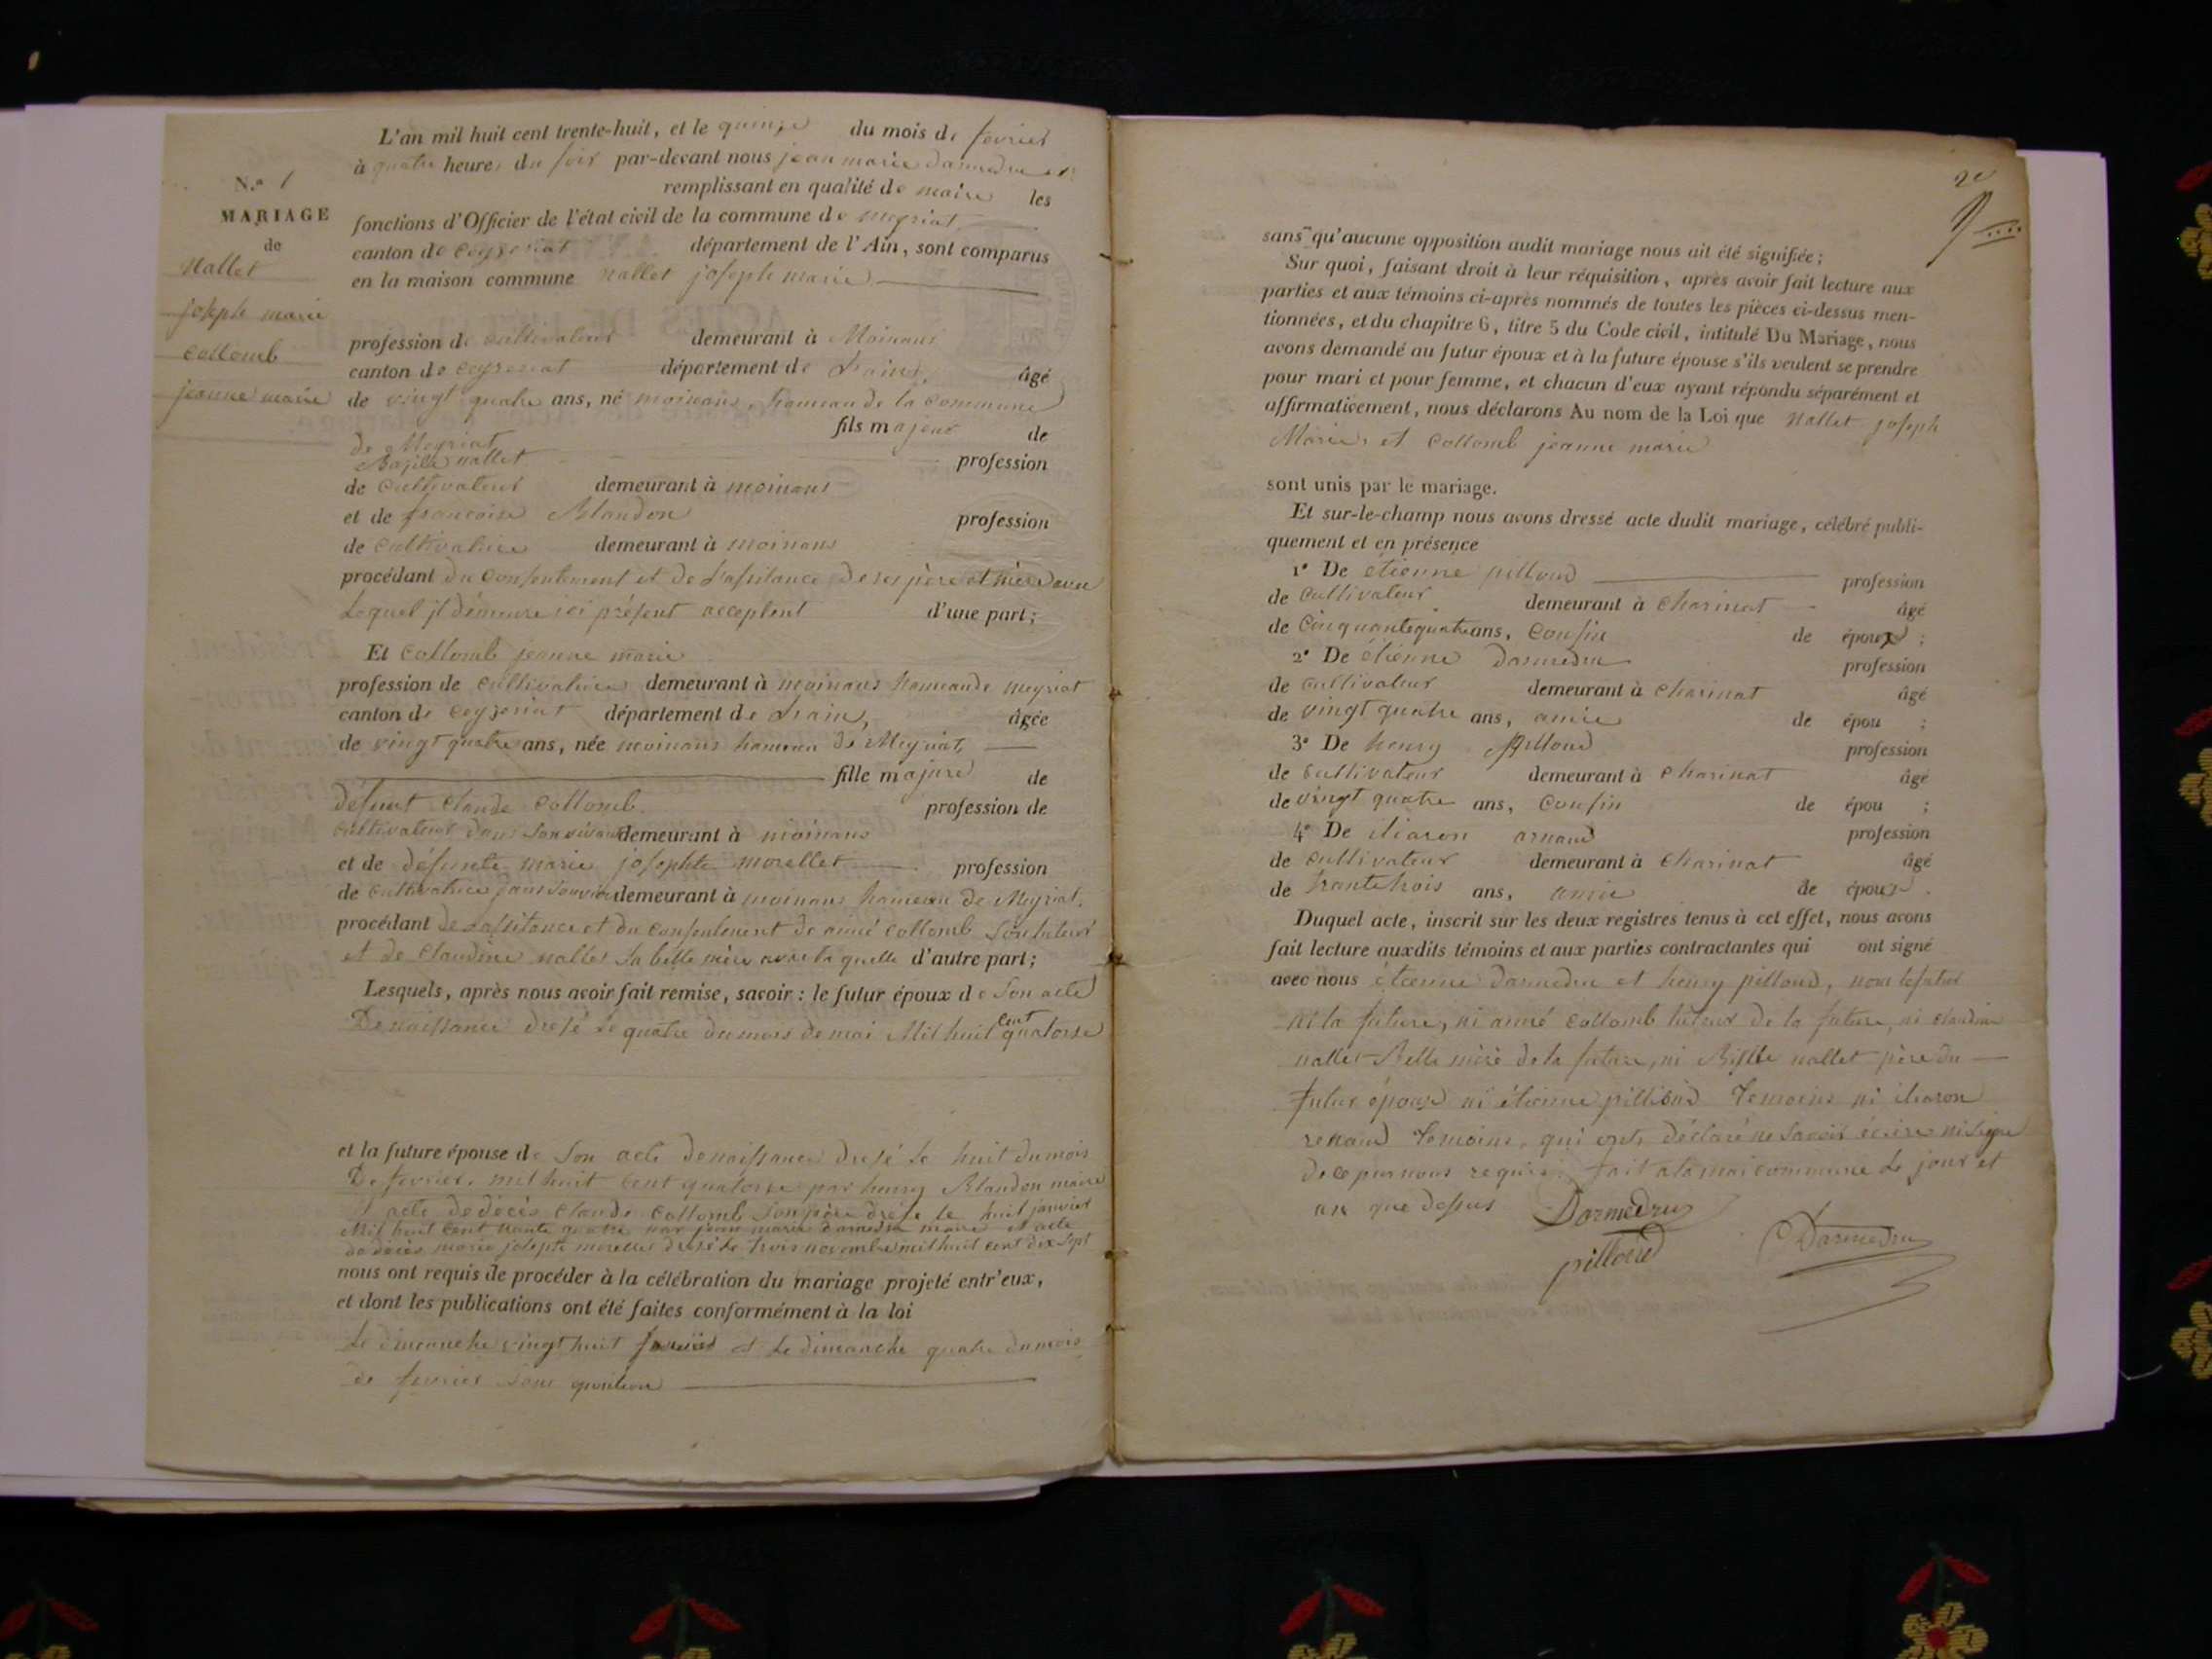 N.° 1
MARIAGE
de
Nallet
joseph marie
Collomb
jeanne marie
L'an mil huit cent trente-huit, et le quinze du mois de fevrier
à quatre heures du soir par-devant nous jean marie darmedru
remplissant en qualité de maire les
fonctions d'Officier de l'état civil de la commune de meyriat
canton de ceyzeriat département de l'Ain, sont comparus
en la maison commune nallet joseph marie
profession de cultivateur demeurant à Moinans
canton de ceyzeriat département de Lain, âgé
de vingt quatre ans, né moinans, hameau de la commune
de Meyriat fils majeur de
Bazile nallet profession
de cultivateur demeurant à moinans
et de francoise Blandon profession
de cultivatrice demeurant à moinans
procédant du consentement et de l'assistance de ses père et mère avec
lequel jl demeure ici présent acceptent d'une part;
Et Collomb jeanne marie
profession de cultivatrice demeurant à moinans hameau de meyriat
canton de ceyzeriat département de Lain, âgée
de vingt quatre ans, née moinans hameau de Meyriat,
fille majure de
defunt claude collomb profession de
cultivateur dans son vivant demeurant à moinans
et de défunte marie josephte morellet profession
de cultivatrice demeurant à moinans hameau de Meyriat.
procédant de lassistance et du consentement de aimé collomb son tuteur
et de Claudine nallet sa belle mère avec la quelle d'autre part;
Lesquels, après nous avoir fait remise, savoir: le futur époux de Son acte
De naissance dresé le quatre du mois de mai Mil huit cent quatorse
et la future épouse de Son acte de naissance dresé le huit du mois
De fevrier mil huit cent quatorse par henry Blandon maire
acte de décès claude collomb son père dresé le huit janvier
Mil huit Cent trante quatre par jean marie darmedru maire et acte
de décès marie josepte morellet dresé le trois novembre mil huit cent dix sept
nous ont requis de procéder à la célébration du mariage projeté entr'eux,
et dont les publications ont été faites conformément à la loi
Le dimanche vingt huit janvier et le dimanche quatre du mois
de fevrier sans oposition
2e
sans qu'aucune opposition audit mariage nous ait été signifiée;
Sur quoi, faisant droit à leur réquisition, après avoir fait lecture aux
parties et aux témoins ci-après nommés de toutes les pièces ci-dessus men-
tionnées, et du chapitre 6, titre 5 du Code civil, intitulé Du Mariage, nous
avons demandé au futur époux et à la future épouse s'ils veulent se prendre
pour mari et pour femme, et chacun d'eux ayant répondu séparément et
affirmativement, nous déclarons Au nom de la Loi que Nallet joseph
Marie, et Collomb jeanne marie
sont unis par le mariage.
Et sur-le-champ nous avons dressé acte dudit mariage, célébré publi-
quement et en présence
1° De étienne pilloud profession
de cultivateur demeurant à Charinat âgé
de Cinquante quatre ans, Cousin de époux;
2° De étienne Darmedru profession
de cultivateur demeurant à charinat âgé
de vingt quatre ans, amie de épou ;
3° De henry pilloud profession
de cultivateur demeurant à Charinat âgé
de vingt quatre ans, Cousin de épou ;
4° De ilaron arnaud profession
de cultivateur demeurant à Charinat âgé
de trante trois ans, amie de époux.
Duquel acte, inscrit sur les deux registres tenus à cet effet, nous avons
fait lecture auxdits témoins et aux parties contractantes qui ont signé
avec nous étienne darmedru et henry pilloud, non le futur
ni la future, ni aimé collomb tuteur de la future, ni claudine
nallet Belle mère de la future, ni nallet père du
futur époux ni étienne pilloud temoins ni ilaron
renaud temoins, qui onts déclaré ne savoir écrire ni signe
de ce par nous requis. fait a la maicommune le jour et
an que dessus Darmedru
pilloud Darmedru